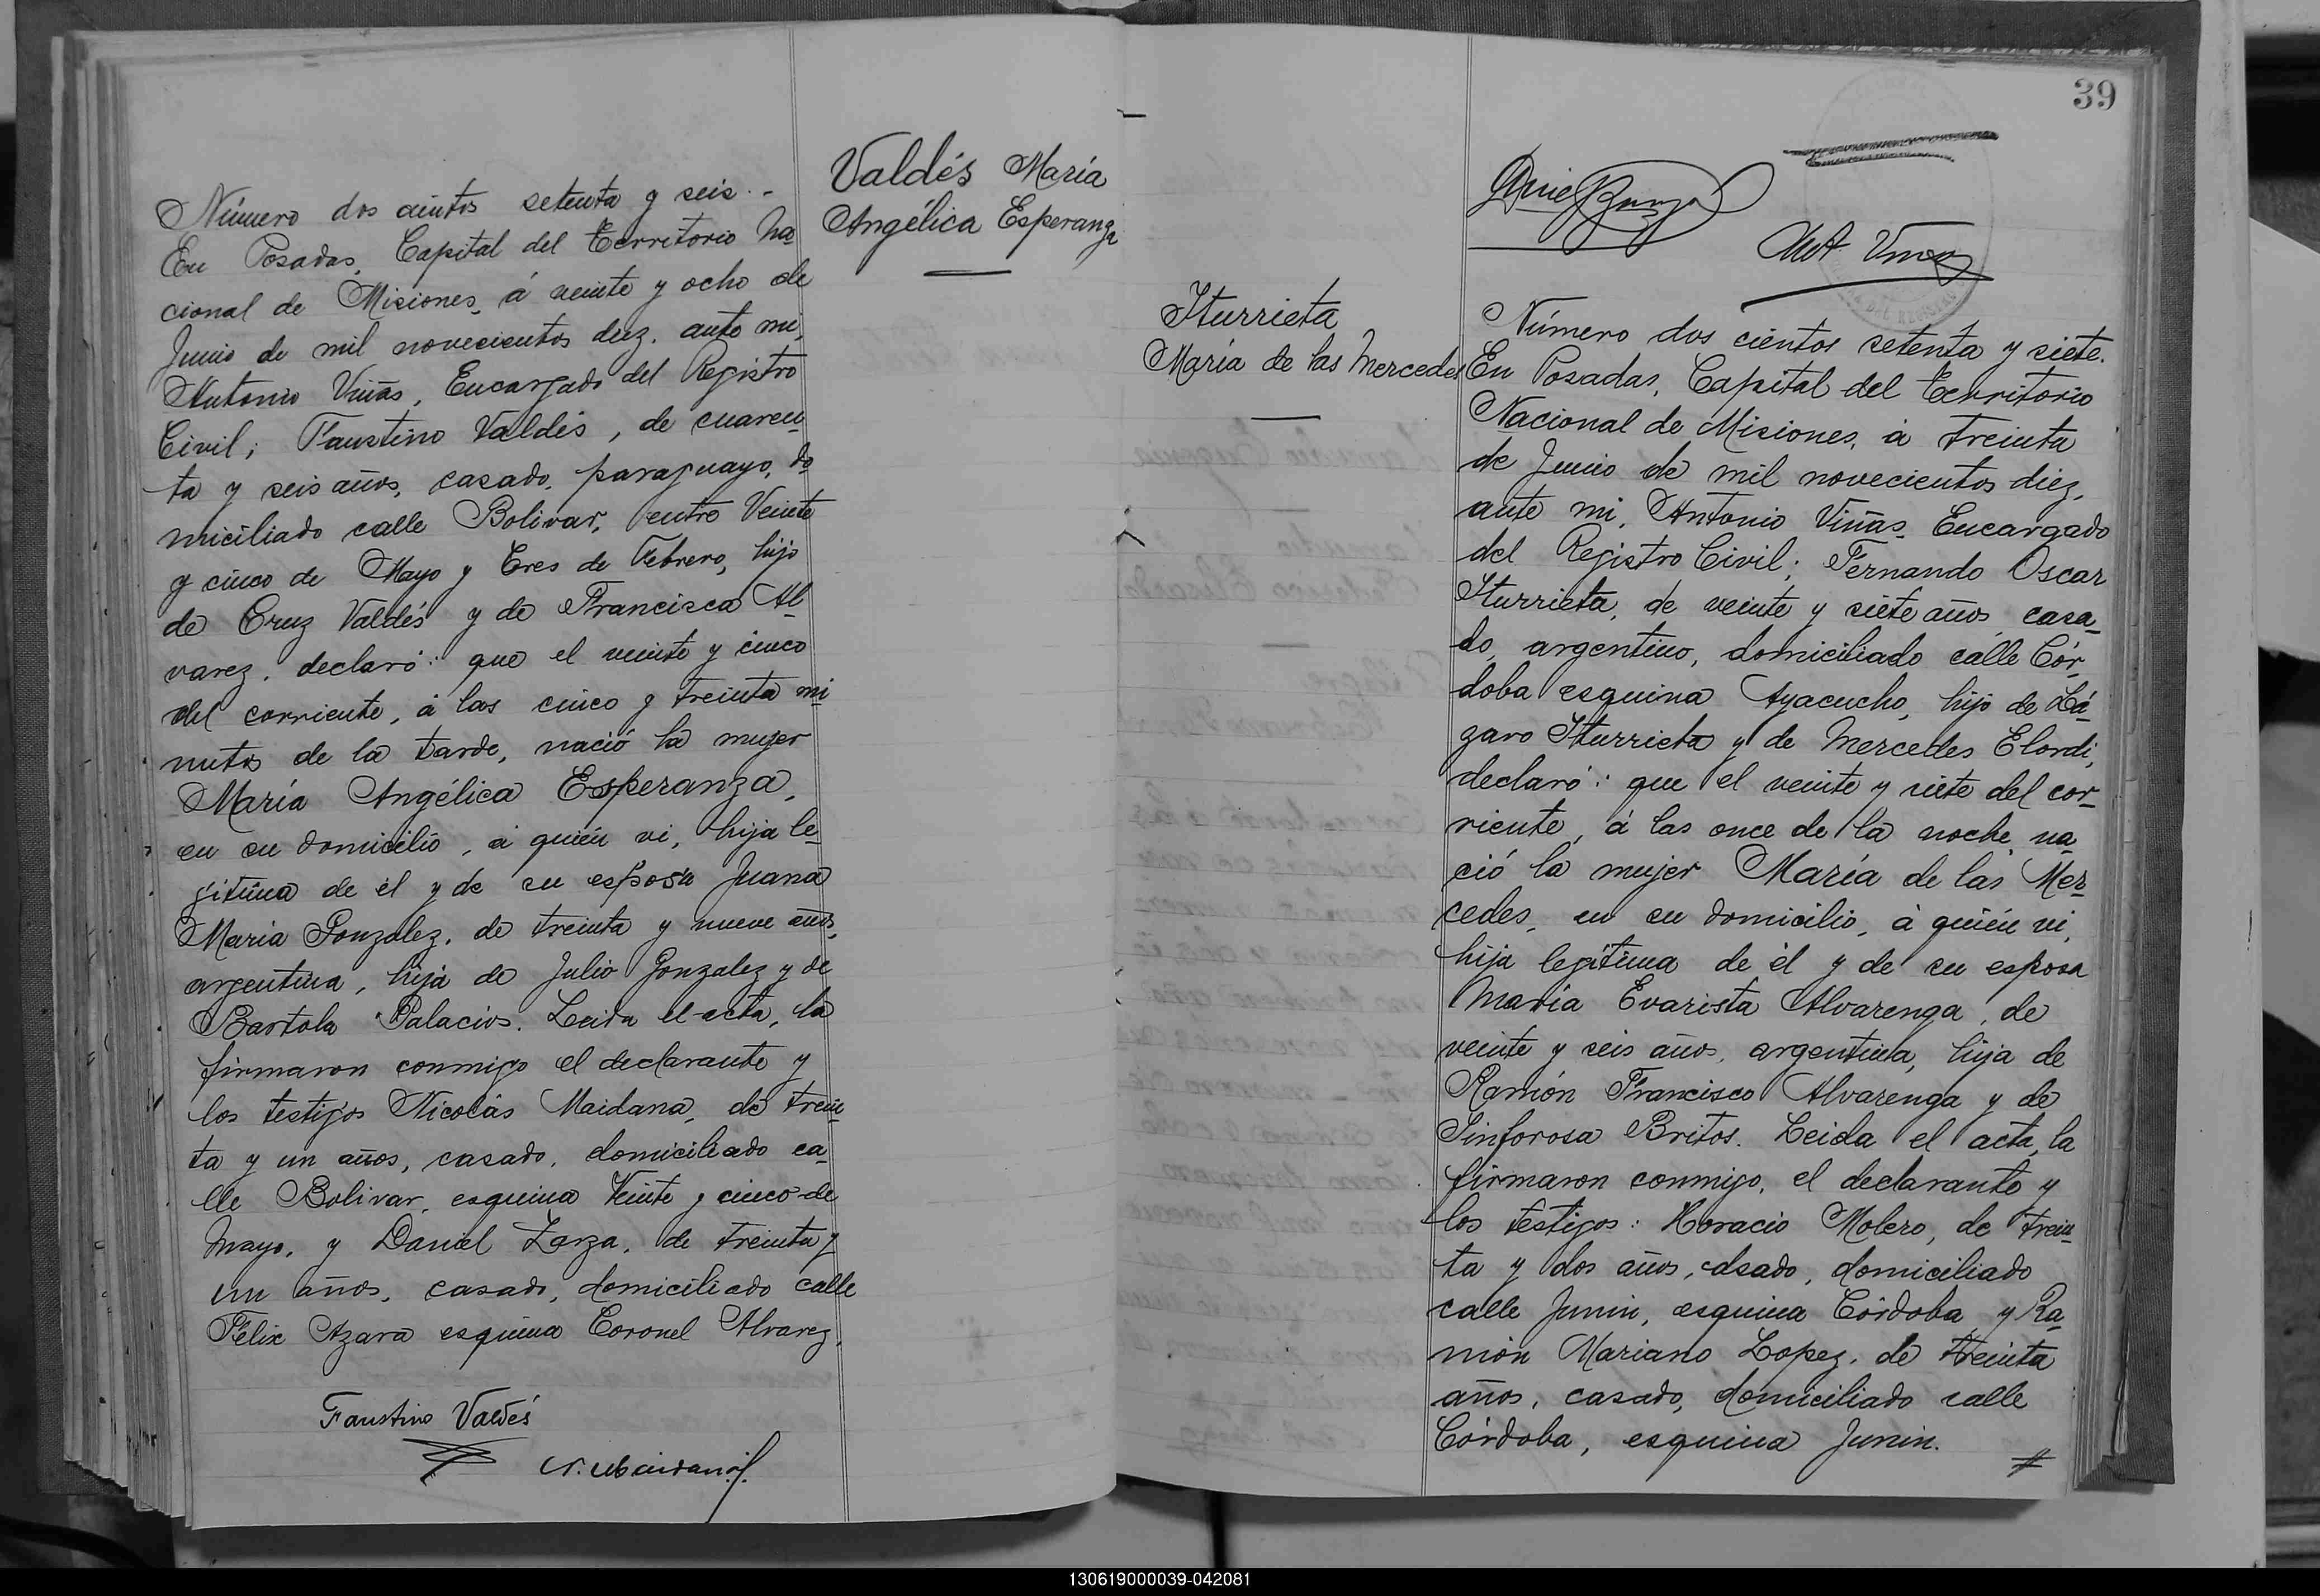 Número dos cientos setenta y seis.-
En Posadas, Capital del Territorio Na
cional de Misiones, á veinte y ocho de
Junio de mil novecientos diez, ante mi,
Antonio Viñas, Encargado del Registro
Civil; Faustino Valdés, de cuaren
ta y seis años, casado, paraguayo, do
miciliado calle Bolivar, entre Veinte
y cinco de Mayo y Tres de Febrero, hijo
de Cruz Valdés y de Francisca Al
varez, declaró: que el veinte y cinco
del corriente, á las cinco y treinta mi
nutos de la tarde, nació la mujer
María Angélica Esperanza,
en su domicilio, á quién vi, hija le
gitima de él y de su esposa Juana
Maria Gonzalez, de treinta y nueve años,
argentina, hija de Julio Gonzalez y de
Bartola Palacios. Leida el acta, la
firmaron conmigo el declarante y
los testigos Nicolás Maidana, de trein
ta y un años, casado, domiciliado ca
lle Bolivar, esquina Veinte y cinco de
Mayo, y Daniel Zarza, de treinta y
un años, casado, domiciliado calle
Félix Azara esquina Coronel Alvarez.
Faustino Valdés
N. Maidana
Valdés María
Angélica Esperanza
39
Ant Viñas
Iturrieta
María de las Mercedes
Número dos cientos setenta y siete.
En Posadas, Capital del Territorio
Nacional de Misiones, á treinta
de Junio de mil novecientos diez,
ante mi, Antonio Viñas, Encargado
del Registro Civil; Fernando Oscar
Iturrieta, de veinte y siete años, casa
do, argentino, domiciliado calle Cór
doba esquina Ayacucho, hijo de Lá
zaro Iturrieta y de Mercedes Elordi,
declaró: que el veinte y siete del cor
riente, á las once de la noche, na
ció la mujer María de las Mer
cedes, en su domicilio, á quién vi,
hija legítima de él y de su esposa
María Evarista Alvarenga, de
veinte y seis años, argentina, hija de
Ramón Francisco Alvarenga y de
Sinforosa Britos. Leida el acta, la
firmaron conmigo, el declarante y
los testigos: Horacio Molero, de trein
ta y dos años, casado, domiciliado
calle Junin, esquina Córdoba y Ra
món Mariano Lopez, de treinta
años, casado, domiciliado calle
Córdoba, esquina Junin.
130619000039-042081